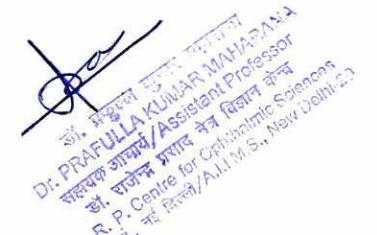 डॉ. प्रफुल्ल कुमार महाराणा
Dr. PRAFULLA KUMAR MAHARANA
सहायक आचार्य/Assistant Professor
डॉ. राजेन्द्र प्रसाद नेत्र विज्ञान केन्द्र
R. P. Centre for Ophthalmic Sciences
नई दिल्ली/A.I.I.M.S., New Delhi-29